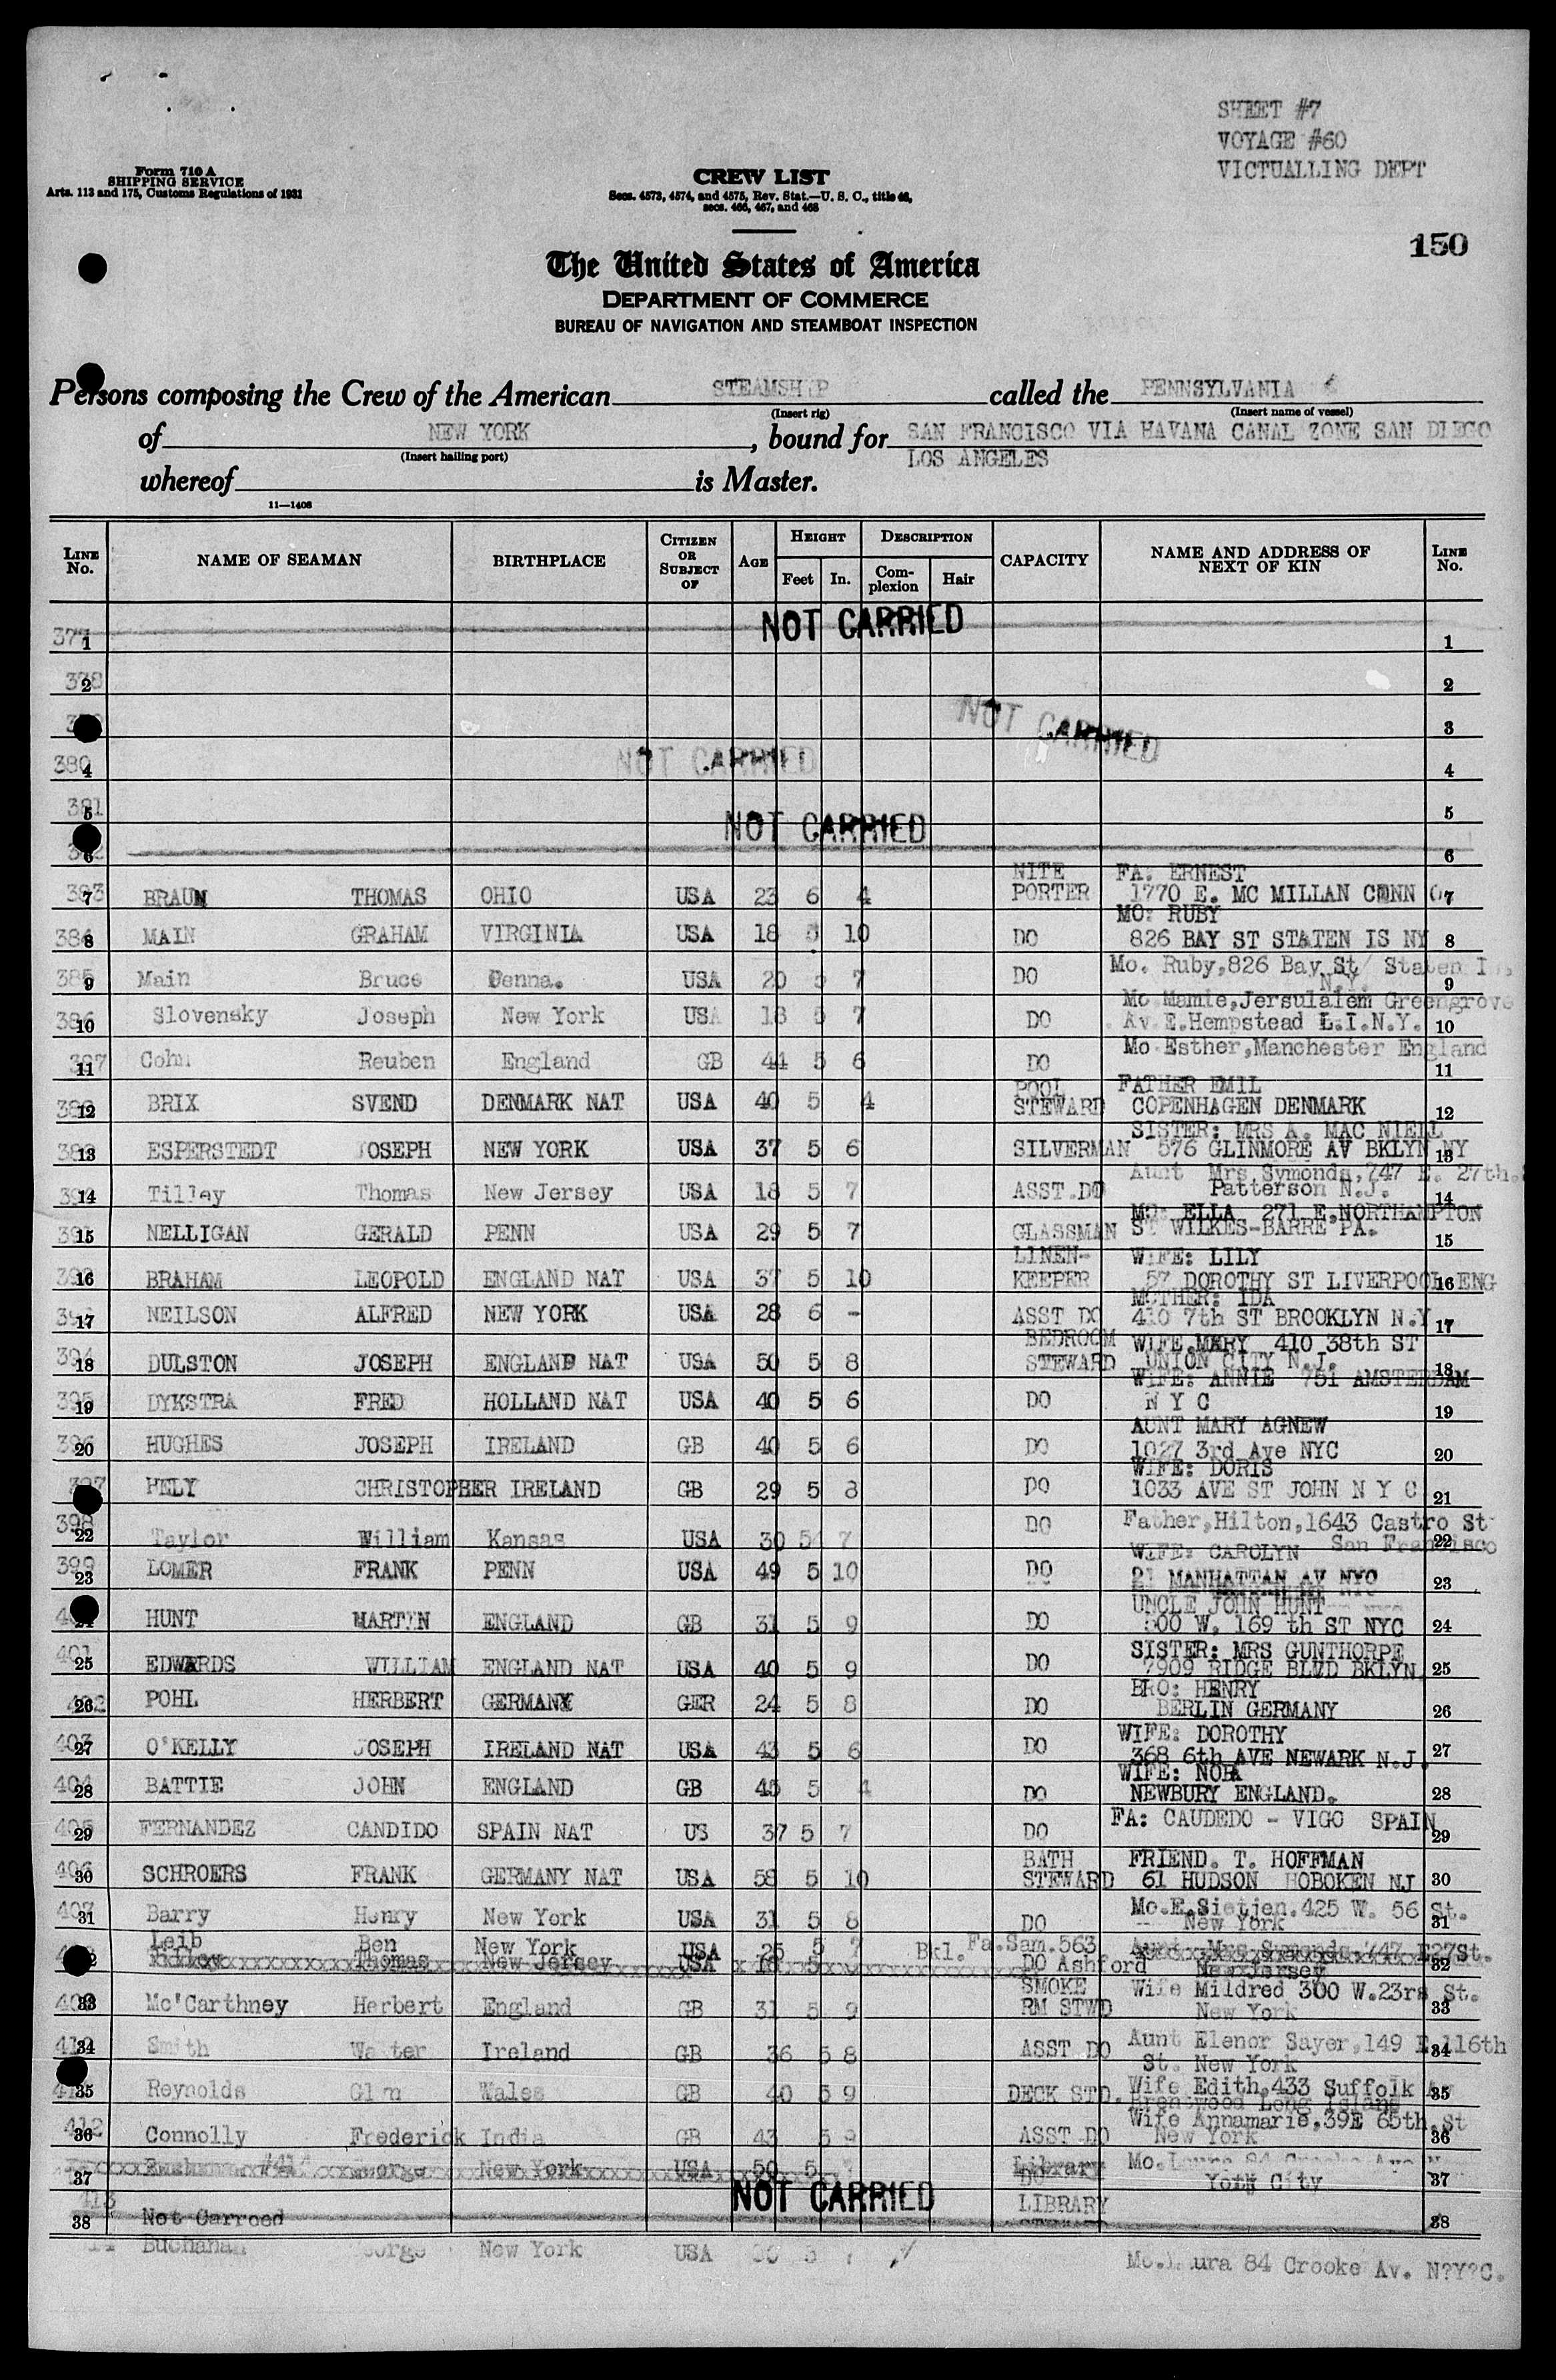 SHEET #7
VOYAGE #60
VICTUALLING DEPT
Form 710 A
SHIPPING SERVICE
Arts. 113 and 175, Customs Regulations of 1931
CREW LIST
Secs. 4573, 4574, and 4575, Rev. Stat.—U. S. C., title 46,
secs. 466, 467, and 468
150
The United States of America
DEPARTMENT OF COMMERCE
BUREAU OF NAVIGATION AND STEAMBOAT INSPECTION
Persons composing the Crew of the American STEAMSHIP called the PENNSYLVANIA
(Insert rig) (Insert name of vessel)
of NEW YORK, bound for SAN FRANCISCO VIA HAVANA CANAL ZONE SAN DIEGO
(Insert hailing port) LOS ANGELES
whereof is Master.
11—1408
LINE No. NAME OF SEAMAN BIRTHPLACE CITIZEN OR SUBJECT OF AGE HEIGHT Feet In. DESCRIPTION Complexion Hair CAPACITY NAME AND ADDRESS OF NEXT OF KIN LINE No.
377 1 NOT CARRIED 1
378 2 2
3 NOT CARRIED 3
380 4 NOT CARRIED 4
381 5 NOT CARRIED 5
6 6
NITE FA: ERNEST
383 7 BRAUN THOMAS OHIO USA 23 6 4 PORTER 1770 E. MC MILLAN CONN O 7
MO: RUBY
384 8 MAIN GRAHAM VIRGINIA USA 18 5 10 DO 826 BAY ST STATEN IS NY 8
385 9 Main Bruce Penna. USA 20 5 7 DO Mo. Ruby,826 Bay St/ Staten I
N.Y. 9
Mo Mamie,Jersulalem Greengrove
386 10 Slovensky Joseph New York USA 18 5 7 DO Av.E.Hempstead L.I.N.Y. 10
387 11 Cohn Reuben England GB 44 5 6 DO Mo Esther,Manchester England 11
POOL FATHER EMIL
388 12 BRIX SVEND DENMARK NAT USA 40 5 4 STEWARD COPENHAGEN DENMARK 12
SISTER: MRS A. MAC NIELL
389 13 ESPERSTEDT JOSEPH NEW YORK USA 37 5 6 SILVERMAN 576 GLINMORE AV BKLYN NY 13
Aunt Mrs Symonds,747 E. 27th.
390 14 Tilley Thomas New Jersey USA 18 5 7 ASST.DO Patterson N.J. 14
MO: ELLA 271 E.NORTHAMPTON
391 15 NELLIGAN GERALD PENN USA 29 5 7 GLASSMAN ST WILKES-BARRE PA. 15
LINEN- WIFE: LILY
392 16 BRAHAM LEOPOLD ENGLAND NAT USA 37 5 10 KEEPER 57 DOROTHY ST LIVERPOOL ENG 16
MOTHER: IDA
393 17 NEILSON ALFRED NEW YORK USA 28 6 - ASST DO 410 7th ST BROOKLYN N.Y 17
BEDROOM WIFE.MARY 410 38th ST
394 18 DULSTON JOSEPH ENGLAND NAT USA 50 5 8 STEWARD UNION CITY N.J. 18
WIFE: ANNIE 751 AMSTERDAM
395 19 DYKSTRA FRED HOLLAND NAT USA 40 5 6 DO N Y C 19
AUNT MARY AGNEW
396 20 HUGHES JOSEPH IRELAND GB 40 5 6 DO 1027 3rd Ave NYC 20
WIFE: DORIS
397 HELY CHRISTOPHER IRELAND GB 29 5 8 DO 1033 AVE ST JOHN N Y C 21
398 22 Taylor William Kansas USA 30 5 7 DO Father,Hilton,1643 Castro St
San Francisco 22
WIFE: CAROLYN
399 23 LOMER FRANK PENN USA 49 5 10 DO 21 MANHATTAN AV NYC 23
UNCLE JOHN HUNT
HUNT MARTIN ENGLAND GB 31 5 9 DO 500 W. 169 th ST NYC 24
SISTER: MRS GUNTHORPE
401 25 EDWARDS WILLIAM ENGLAND NAT USA 40 5 9 DO 7909 RIDGE BLVD BKLYN. 25
BRO: HENRY
402 26 POHL HERBERT GERMANY GER 24 5 8 DO BERLIN GERMANY 26
WIFE: DOROTHY
403 27 O'KELLY JOSEPH IRELAND NAT USA 43 5 6 DO 368 6th AVE NEWARK N.J. 27
WIFE: NORA
404 28 BATTIE JOHN ENGLAND GB 45 5 4 DO NEWBURY ENGLAND. 28
405 29 FERNANDEZ CANDIDO SPAIN NAT US 37 5 7 DO FA: CAUDEDO - VIGO SPAIN 29
BATH FRIEND. T. HOFFMAN
406 30 SCHROERS FRANK GERMANY NAT USA 58 5 10 STEWARD 61 HUDSON HOBOKEN NJ 30
407 31 Barry Henry New York USA 31 5 8 DO Mo.E.Sietjen.425 W. 56 St.
New York 31
Leib Ben New York USA 25 5 7 Bkl. Fa.Sam.563
Tilley Thomas New Jersey USA 18 5 DO Ashford Aunt Mrs Symonds.747 E27St. 32
New Jersey
SMOKE Wife Mildred 300 W.23rs St.
409 33 Mc'Carthney Herbert England GB 31 5 9 RM STWD New York 33
410 34 Smith Walter Ireland GB 36 5 8 ASST DO Aunt Elenor Sayer,149 E.116th 34
St. New York
35 Reynolds Glim Wales GB 40 5 9 DECK STD. Wife Edith,433 Suffolk Av 35
Brentwood Long Island
Wife Annamarie,39E 65th.St
412 36 Connolly Frederick India GB 43 5 9 ASST DO New York 36
37 George New York USA 50 5 7 Library Mo.Laura 84 Crooke Ave N
DO York City 37
413 NOT CARRIED LIBRARY
38 Not Carroed 38
Buchanan George New York USA 50 5 7 Mo.Laura 84 Crooke Av. N?Y?C.